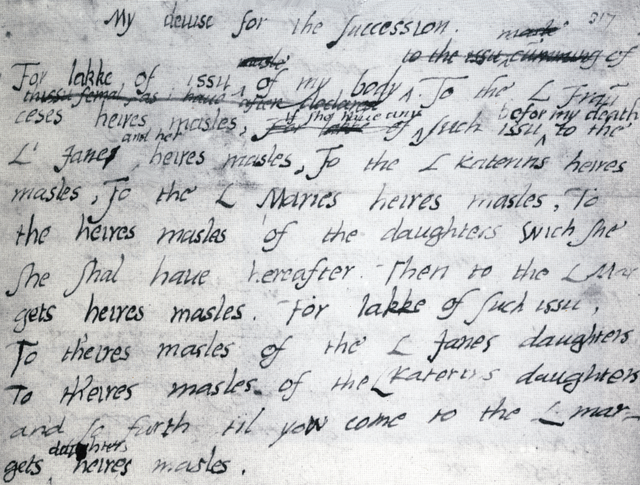 My deuise for the Succession.
317
masle
to the issu cumming of
masle
For lakke of issu of my body. To the L Frau
thissu femal, as i haue after declared
if she haue any
befor my death
ceses heires masles, For lakke of such issu to the
and her
L' Janes heires masles, To the L Katerins heires
masles, To the L Maries heires masles, To
the heires masles of the daughters wich she
she shal haue hereafter. Then to the L Mar
gets heires masles. For lakke of such issu,
To th'eires masles of the L Janes daughters
To th'eires masles of the L Katerins daughters
and so furth til yow come to the L mar-
daughters
gets heires masles.